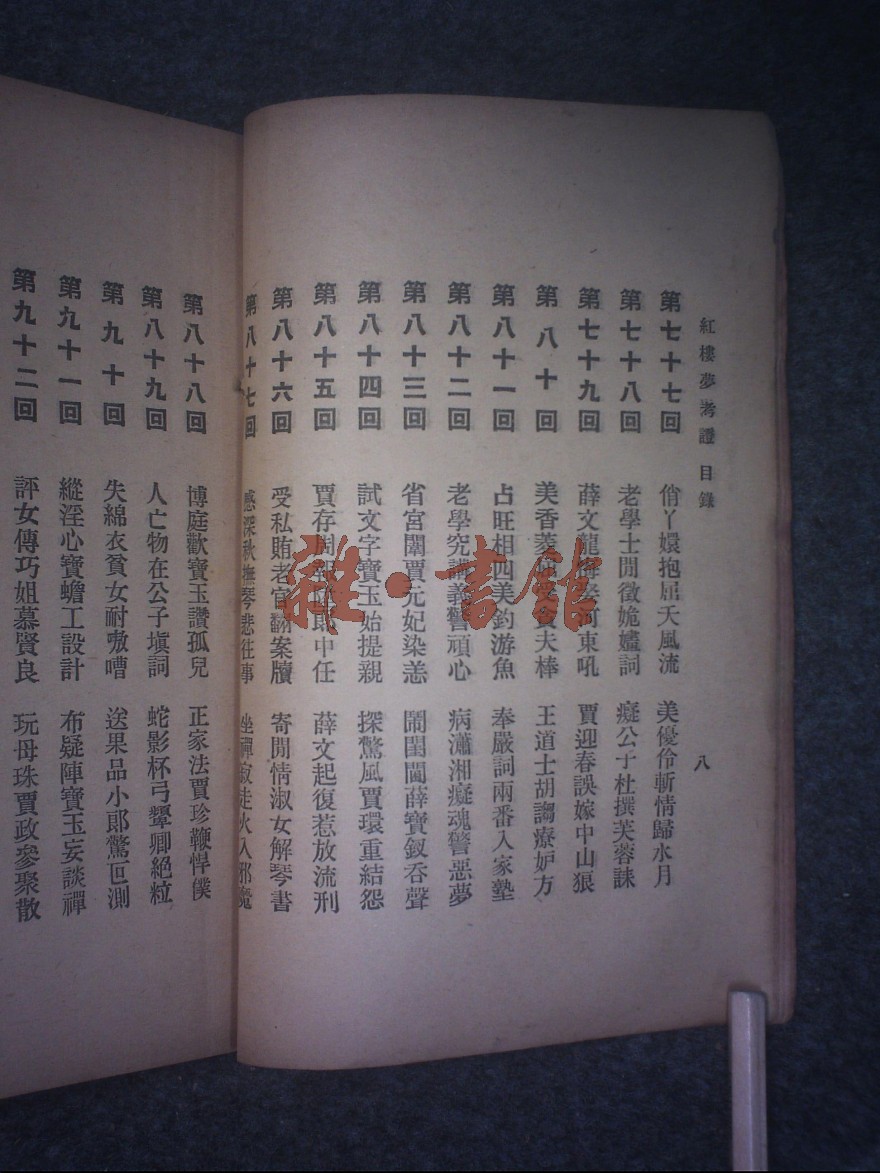 紅樓夢考證 目錄
八
第七十七回 俏丫嬛抱屈夭風流 美優伶斬情歸水月
第七十八回 老學士閒徵姽嫿詞 癡公子杜撰芙蓉誄
第七十九回 薛文龍悔娶河東吼 賈迎春誤嫁中山狼
第八十回 美香菱屈受貪夫棒 王道士胡謅療妒方
第八十一回 占旺相四美釣游魚 奉嚴詞兩番入家塾
第八十二回 老學究講義警頑心 病瀟湘癡魂警惡夢
第八十三回 省宮闈賈元妃染恙 鬧閨閫薛寶釵吞聲
第八十四回 試文字寶玉始提親 探驚風賈環重結怨
第八十五回 賈存周報陞郎中任 薛文起復惹放流刑
第八十六回 受私賄老官翻案牘 寄閒情淑女解琴書
第八十七回 感深秋撫琴悲往事 坐禪寂走火入邪魔
第八十八回 博庭歡寶玉讚孤兒 正家法賈珍鞭悍僕
第八十九回 人亡物在公子塡詞 蛇影杯弓顰卿絕粒
第九十回 失綿衣貧女耐嗷嘈 送果品小郞驚叵測
第九十一回 縱淫心寶蟾工設計 布疑陣寶玉妄談禪
第九十二回 評女傳巧姐慕賢良 玩母珠賈政參聚散
雜·書館